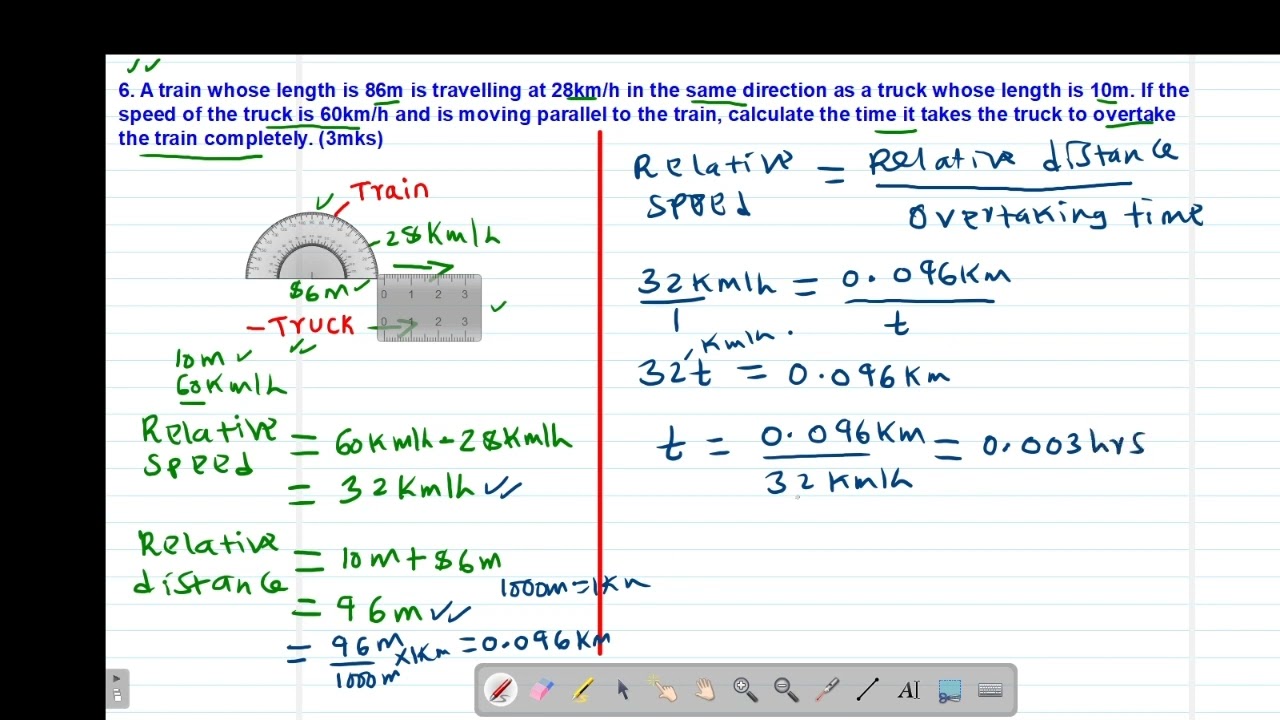 6. A train whose length is 86m is travelling at 28km/h in the same direction as a truck whose length is 10m. If the
speed of the truck is 60km/h and is moving parallel to the train, calculate the time it takes the truck to overtake
the train completely. (3mks)
Train
28Km/h
86m
0 1 2 3
0 1 2 3
Truck
10m
60Km/h
Relative speed = 60Km/h - 28Km/h
= 32Km/h
Relative distance = 10m + 86m
= 96m
1000m = 1Km
= 96m/1000m × 1Km = 0.096Km
Relative speed = Relative distance / Overtaking time
32Km/h / 1 = 0.096Km / t
32t Km/h = 0.096Km
t = 0.096Km / 32Km/h = 0.003hrs
AI